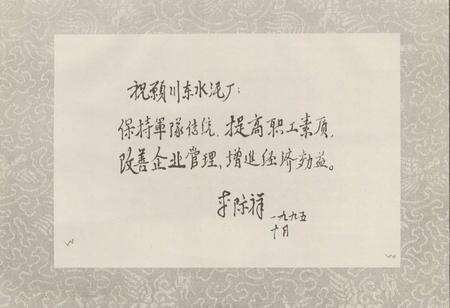 祝願川东水泥厂：
保持軍隊传统、提高职工素质、
改善企业管理、增進经济効益。
李际祥
一九九五
十月